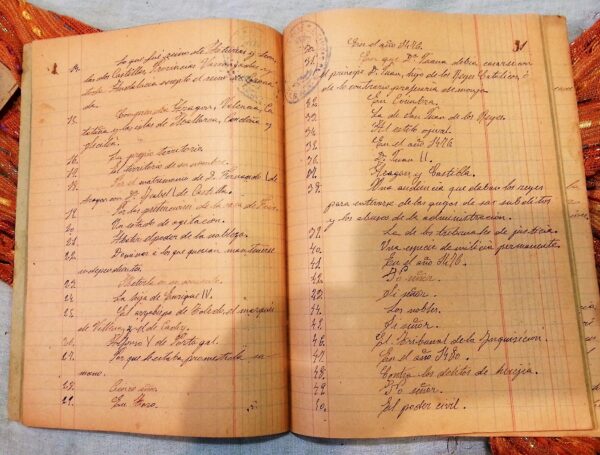 14. Lo que fué reino de Asturias y León,
las dos Castillas, Provincias Vascongadas y
toda Andalucía excepto el reino de Granada
da.
15. Comprendía Aragón, Valencia, Ca
taluña y las islas de Mallorca, Cerdeña y
Sicilia.
16. Su propio territorio
17. El territorio de su nombre.
18. Por el matrimonio de D. Fernando V de
Aragon con Dª Isabel I de Castilla.
19. Por las pretensiones de la casa de
20. Un estado de agitacion.
21. Abatir el poder de la nobleza.
22. Oponerse á lo que querían mantenerse
independientes.
23. Meterla en un convento.
24. La hija de Enrique IV.
25. El arzobispo de Toledo, el marqués
de Villena y el de Cádiz.
26. Alfonso V de Portugal.
27. Por que le estaba prometida su
mano.
28. Cinco años.
29. En Toro.
31
30. En el año 1476.
31. En que Dª Juana debía casarse con
el príncipe D. Juan, hijo de los Reyes Católicos, ó
de lo contrario profesara de monja.
32. En Coimbra.
33. La de San Juan de los Reyes.
34. Al estilo ojival.
35. En el año 1476
36. D. Juan II.
37. Aragon y Castilla.
38. Una audiencia que daban los reyes
para enterarse de las quejas de sus subditos
y los abusos de la administración.
39. La de los tribunales de justicia.
40. Una especie de milicia permanente.
41. En el año 1476.
42. No señor.
43. Si señor.
44. Los nobles.
45. Si señor.
46. El Tribunal de la Inquisición.
47. En el año 1480.
48. Contra los delitos de herejía.
49. No señor.
50. El poder civil.